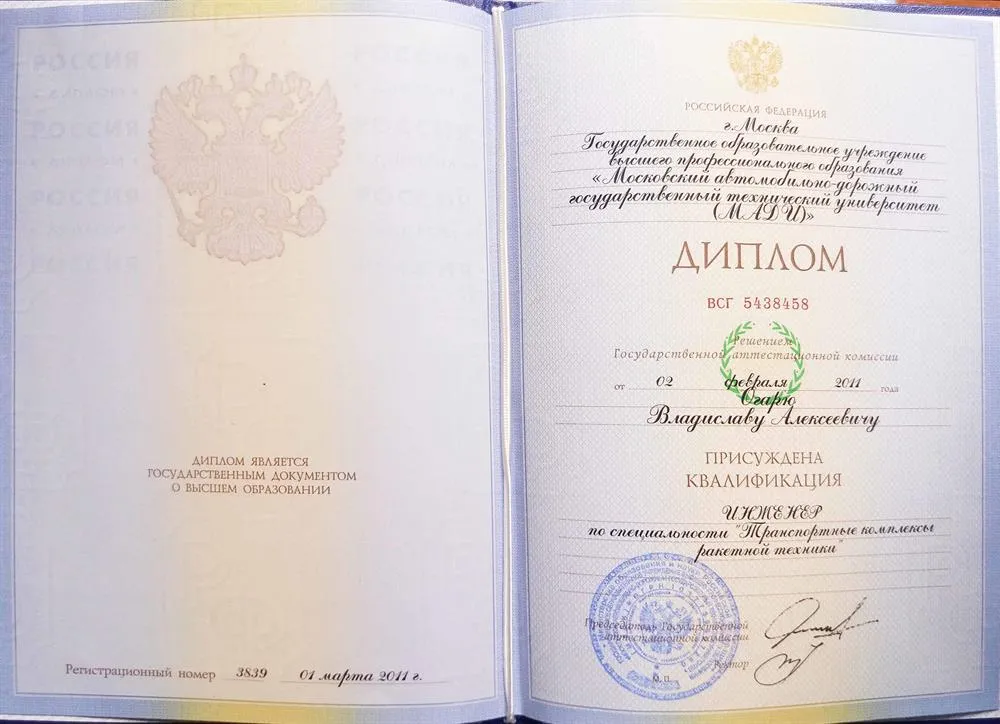 ДИПЛОМ ЯВЛЯЕТСЯ
ГОСУДАРСТВЕННЫМ ДОКУМЕНТОМ
О ВЫСШЕМ ОБРАЗОВАНИИ
Регистрационный номер 3839 01 марта 2011 г.
РОССИЙСКАЯ ФЕДЕРАЦИЯ
г.Москва
Государственное образовательное учреждение
высшего профессионального образования
«Московский автомобильно-дорожный
государственный технический университет
(МАДИ)»
ДИПЛОМ
ВСГ 5438458
Решением
Государственной аттестационной комиссии
от 02 февраля 2011 года
Огарю
Владиславу Алексеевичу
ПРИСУЖДЕНА
КВАЛИФИКАЦИЯ
ИНЖЕНЕР
по специальности "Транспортные комплексы
ракетной техники"
Председатель Государственной
аттестационной комиссии
Ректор
М.п.